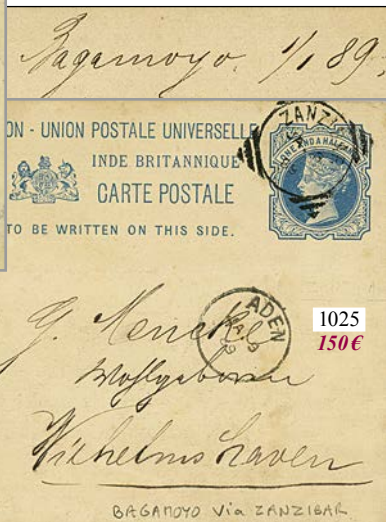 Bagamoyo. 1/1 89
ON - UNION POSTALE UNIVERSELLE
INDE BRITANNIQUE
CARTE POSTALE
TO BE WRITTEN ON THIS SIDE.
ZANZI
ADEN
1025
150 €
G. Mencke
Wohlgeboren
Wilhelmshaven
BAGAMOYO Via ZANZIBAR